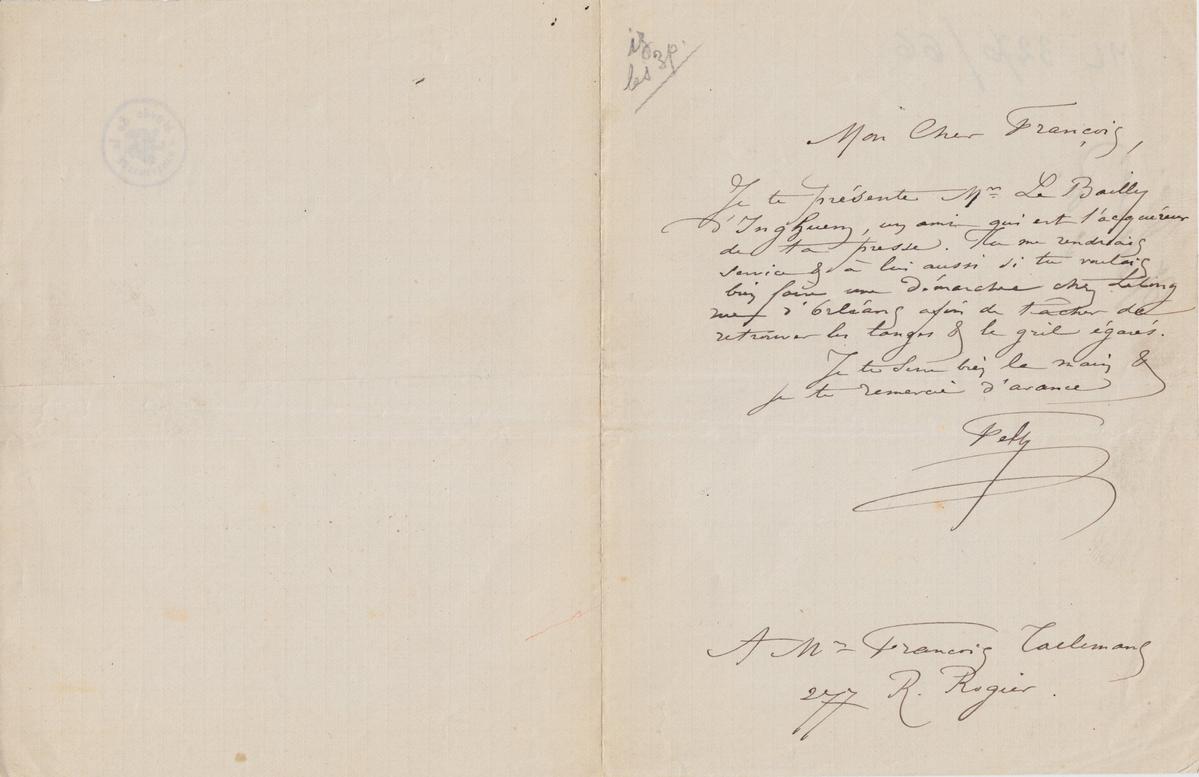 Mon Cher François,
Je te présente Mr Le Bailly
d'Inghuem, un ami qui est l'acquéreur
de ta presse. Tu me rendrais
service & à lui aussi si tu voulais
bien faire une démarche chez Lelong
rue d'Orléans afin de tâcher de
retrouver les langes & le gril égarés.
Je te serre bien la main &
je te remercie d'avance
A Mr François Taelemans
277 R. Rogier.